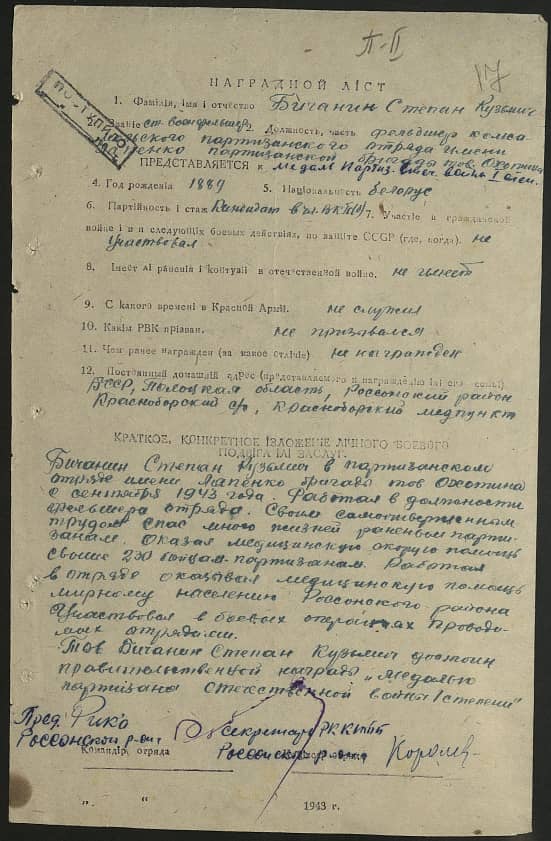 Л-II
17
НАГРАДНОЙ ЛІСТ
1. Фамілія, імя і отчество Бичанин Степан Кузьмич
Звание ст. военфельдшер 2. Должность, часть фельдшер комса-
мольского партизанского отряда имени
партизанской бригады тов. Охотина
ПРЕДСТАВЛЯЕТСЯ к медаль Партиз. Отеч. война I степ.
4. Год рождения 1889 5. Національность белорус
6. Партійность і стаж Кандидат в чл. ВКП(б) 7. Участіе в гражданской
войне і в последующіх боевых действіях по защіте СССР (где, когда). не
участвовал
8. Імеет лі раненія і контузіі в отечественной войне. не имеет
9. С какого времені в Красной Арміі. не служил
10. Какім РВК прізван. не призывался
11. Чем ранее награжден (за какое отлічіе) не награжден
12. Постоянный домашній адрес (представляемого к награжденію ілі его семьі)
БССР, Полоцкая область, Россонский район
Красноборский с/с, Красноборский медпункт
КРАТКОЕ, КОНКРЕТНОЕ ІЗЛОЖЕНІЕ ЛІЧНОГО БОЕВОГО
ПОДВІГА ІЛІ ЗАСЛУГ.
Бичанин Степан Кузьмич в партизанском
отряде имени Лапенко бригады тов Охотина
с сентября 1943 года. Работал в должности
фельшера отряда. Своим самоотверженным
трудом спас много жизней раненым парти-
занам. Оказал медицинскую скорую помощь
свыше 230 бойцам-партизанам. Работая
в отряде оказывал медицинскую помощь
мирному населению Россонского района
Участвовал в боевых операциях проводи-
мых отрядами.
Тов Бичанин Степан Кузьмич достоин
правительственной награды „Медалью
партизана отечественной войны I степени"
Пред. Рико Секретарь РК КПБ
Россонского р-она Россонского р-она Королев
Командір отряда
„ “ 1943 г.